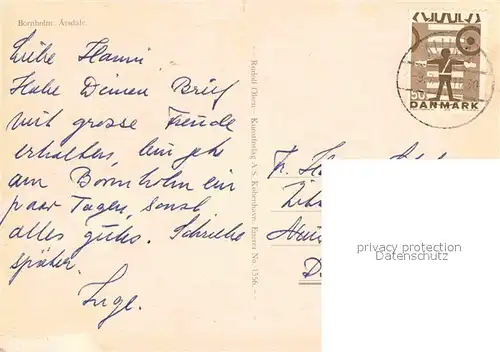 Bornholm: Årsdale.
Liebe Hanni.
Habe Deinen Brief
mit grosse Freude
erhalten, bin jetz
am Bornholm ein
paar Tagen, sonst
alles gutes. Schreibe
später.
Inge.
Rudolf Olsen - Kunstforlag A/S. København. Eneret No. 1556.
50
DANMARK
Fr. H
D
privacy protection
Datenschutz